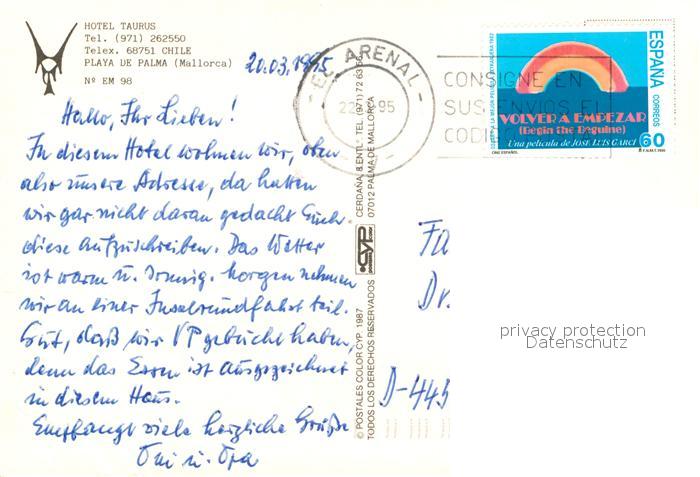 HOTEL TAURUS
Tel. (971) 262550
Telex. 68751 CHILE
PLAYA DE PALMA (Mallorca)
Nº EM 98
20.03.1995
Hallo, Ihr Lieben!
In diesem Hotel wohnen wir, oben
also unsere Adresse, da hatten
wir gar nicht daran gedacht Euch
diese aufzuschreiben. Das Wetter
ist warm u. sonnig. Morgen nehmen
wir an einer Inselrundfahrt teil.
Gut, daß wir VP gebucht haben,
denn das Essen ist ausgezeichnet
in diesem Haus.
Empfangt viele herzliche Grüße
Omi u. Opa
© POSTALES COLOR CYP. 1987
TODOS LOS DERECHOS RESERVADOS
CYP
CERDAÑA, 8 ENTLº TEL. (971) 72 63 56
07012 PALMA DE MALLORCA
EL ARENAL
22 95
CONSIGNE EN
SUS ENVIOS EL
CODIGO
ESPAÑA
CORREOS
VOLVER A EMPEZAR
(Begin the Beguine)
Una película de JOSE LUIS GARCI
CINE ESPAÑOL
60
Fa
Dr.
D-445
privacy protection
Datenschutz